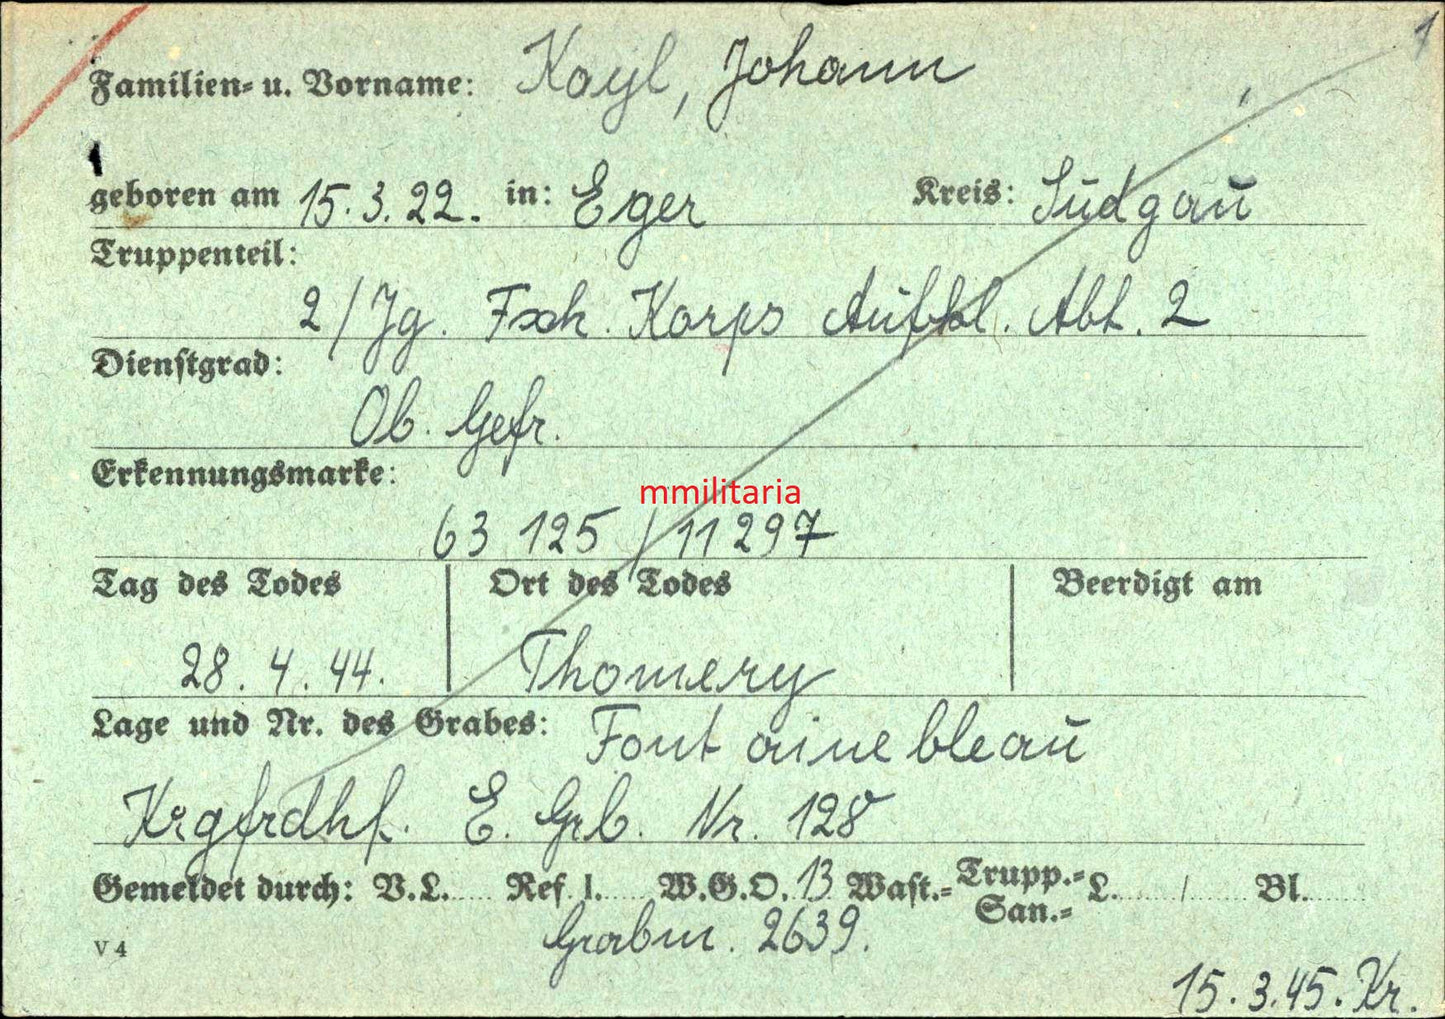 1
Familien- u. Vorname: Kayl, Johann
geboren am 15.3.22. in: Eger Kreis: Südgau
Truppenteil:
2/Jg. Fsch. Korps Aufkl. Abt. 2
Dienstgrad:
Ob. Gefr.
Erkennungsmarke:
mmilitaria
63 125 / 11297
Tag des Todes Ort des Todes Beerdigt am
28. 4. 44. Thomery
Lage und Nr. des Grabes: Fontainebleau
Krgfrdhf. E. Grb. Nr. 128
Gemeldet durch: V.L. Ref. I. W.G.O. 13 Wast.- Trupp.- San.- L. / Bl.
Grabm. 2639.
V 4
15.3.45. Kr.